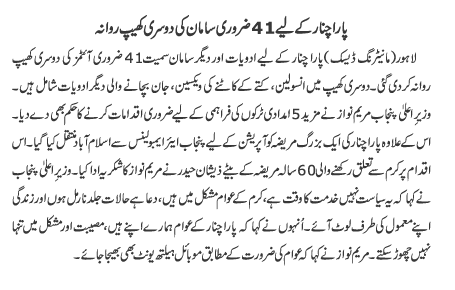 پاراچنار کے لیے 41 ضروری سامان کی دوسری کھیپ روانہ
لاہور (مانیٹرنگ ڈیسک) پاراچنار کے لیے ادویات اور دیگر سامان سمیت 41 ضروری آئٹمز کی دوسری کھیپ
روانہ کر دی گئی۔ دوسری کھیپ میں انسولین، کتے کے کاٹنے کی ویکسین، جان بچانے والی دیگر ادویات شامل ہیں۔
وزیرِ اعلیٰ پنجاب مریم نواز نے مزید 5 امدادی ٹرکوں کی فراہمی کے لیے ضروری اقدامات کرنے کا حکم بھی دے دیا۔
اس کے علاوہ پاراچنار کی ایک بزرگ مریضہ کو آپریشن کے لیے پنجاب ایئر ایمبولینس سے اسلام آباد منتقل کیا گیا۔ اس
اقدام پر کرم سے تعلق رکھنے والی 60 سالہ مریضہ کے بیٹے ذیشان حیدر نے مریم نواز کا شکریہ ادا کیا۔ وزیرِ اعلیٰ پنجاب
نے کہا کہ یہ سیاست نہیں خدمت کا وقت ہے، کرم کے عوام مشکل میں ہیں، دعا ہے حالات جلد نارمل ہوں اور زندگی
اپنے معمول کی طرف لوٹ آئے۔ اُنہوں نے کہا کہ پاراچنار کے عوام ہمارے اپنے ہیں، مصیبت اور مشکل میں تنہا
نہیں چھوڑ سکتے۔ مریم نواز نے کہا کہ عوام کی ضرورت کے مطابق موبائل ہیلتھ یونٹ بھی بھیجا جائے۔